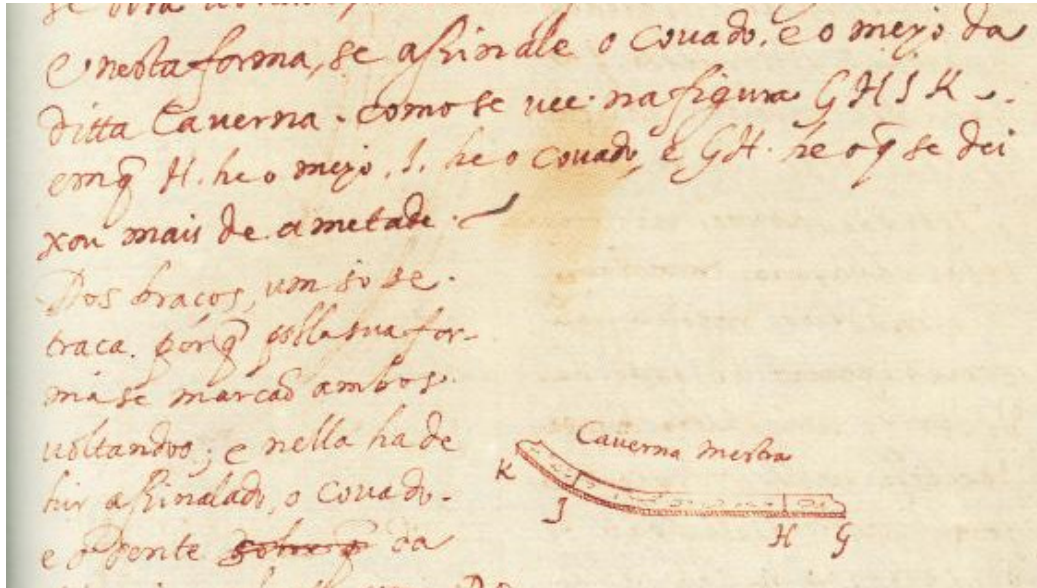 e nesta forma, se assinale o Couado, e o meyo da
ditta Caverna. como se vee na figura GHJK.
em q̃ H. he o meyo, J. he o couado, e GH. he o q̃ se dei
xou mais de ametade.
Dos braços, um so se
traca. porq̃ polla sua for-
ma se marcaõ ambos
voltandoo; e nella ha de
hir assinalado, o couado.
e o Dente sobre q̃ da
Caverna mestra
K
J
H
G